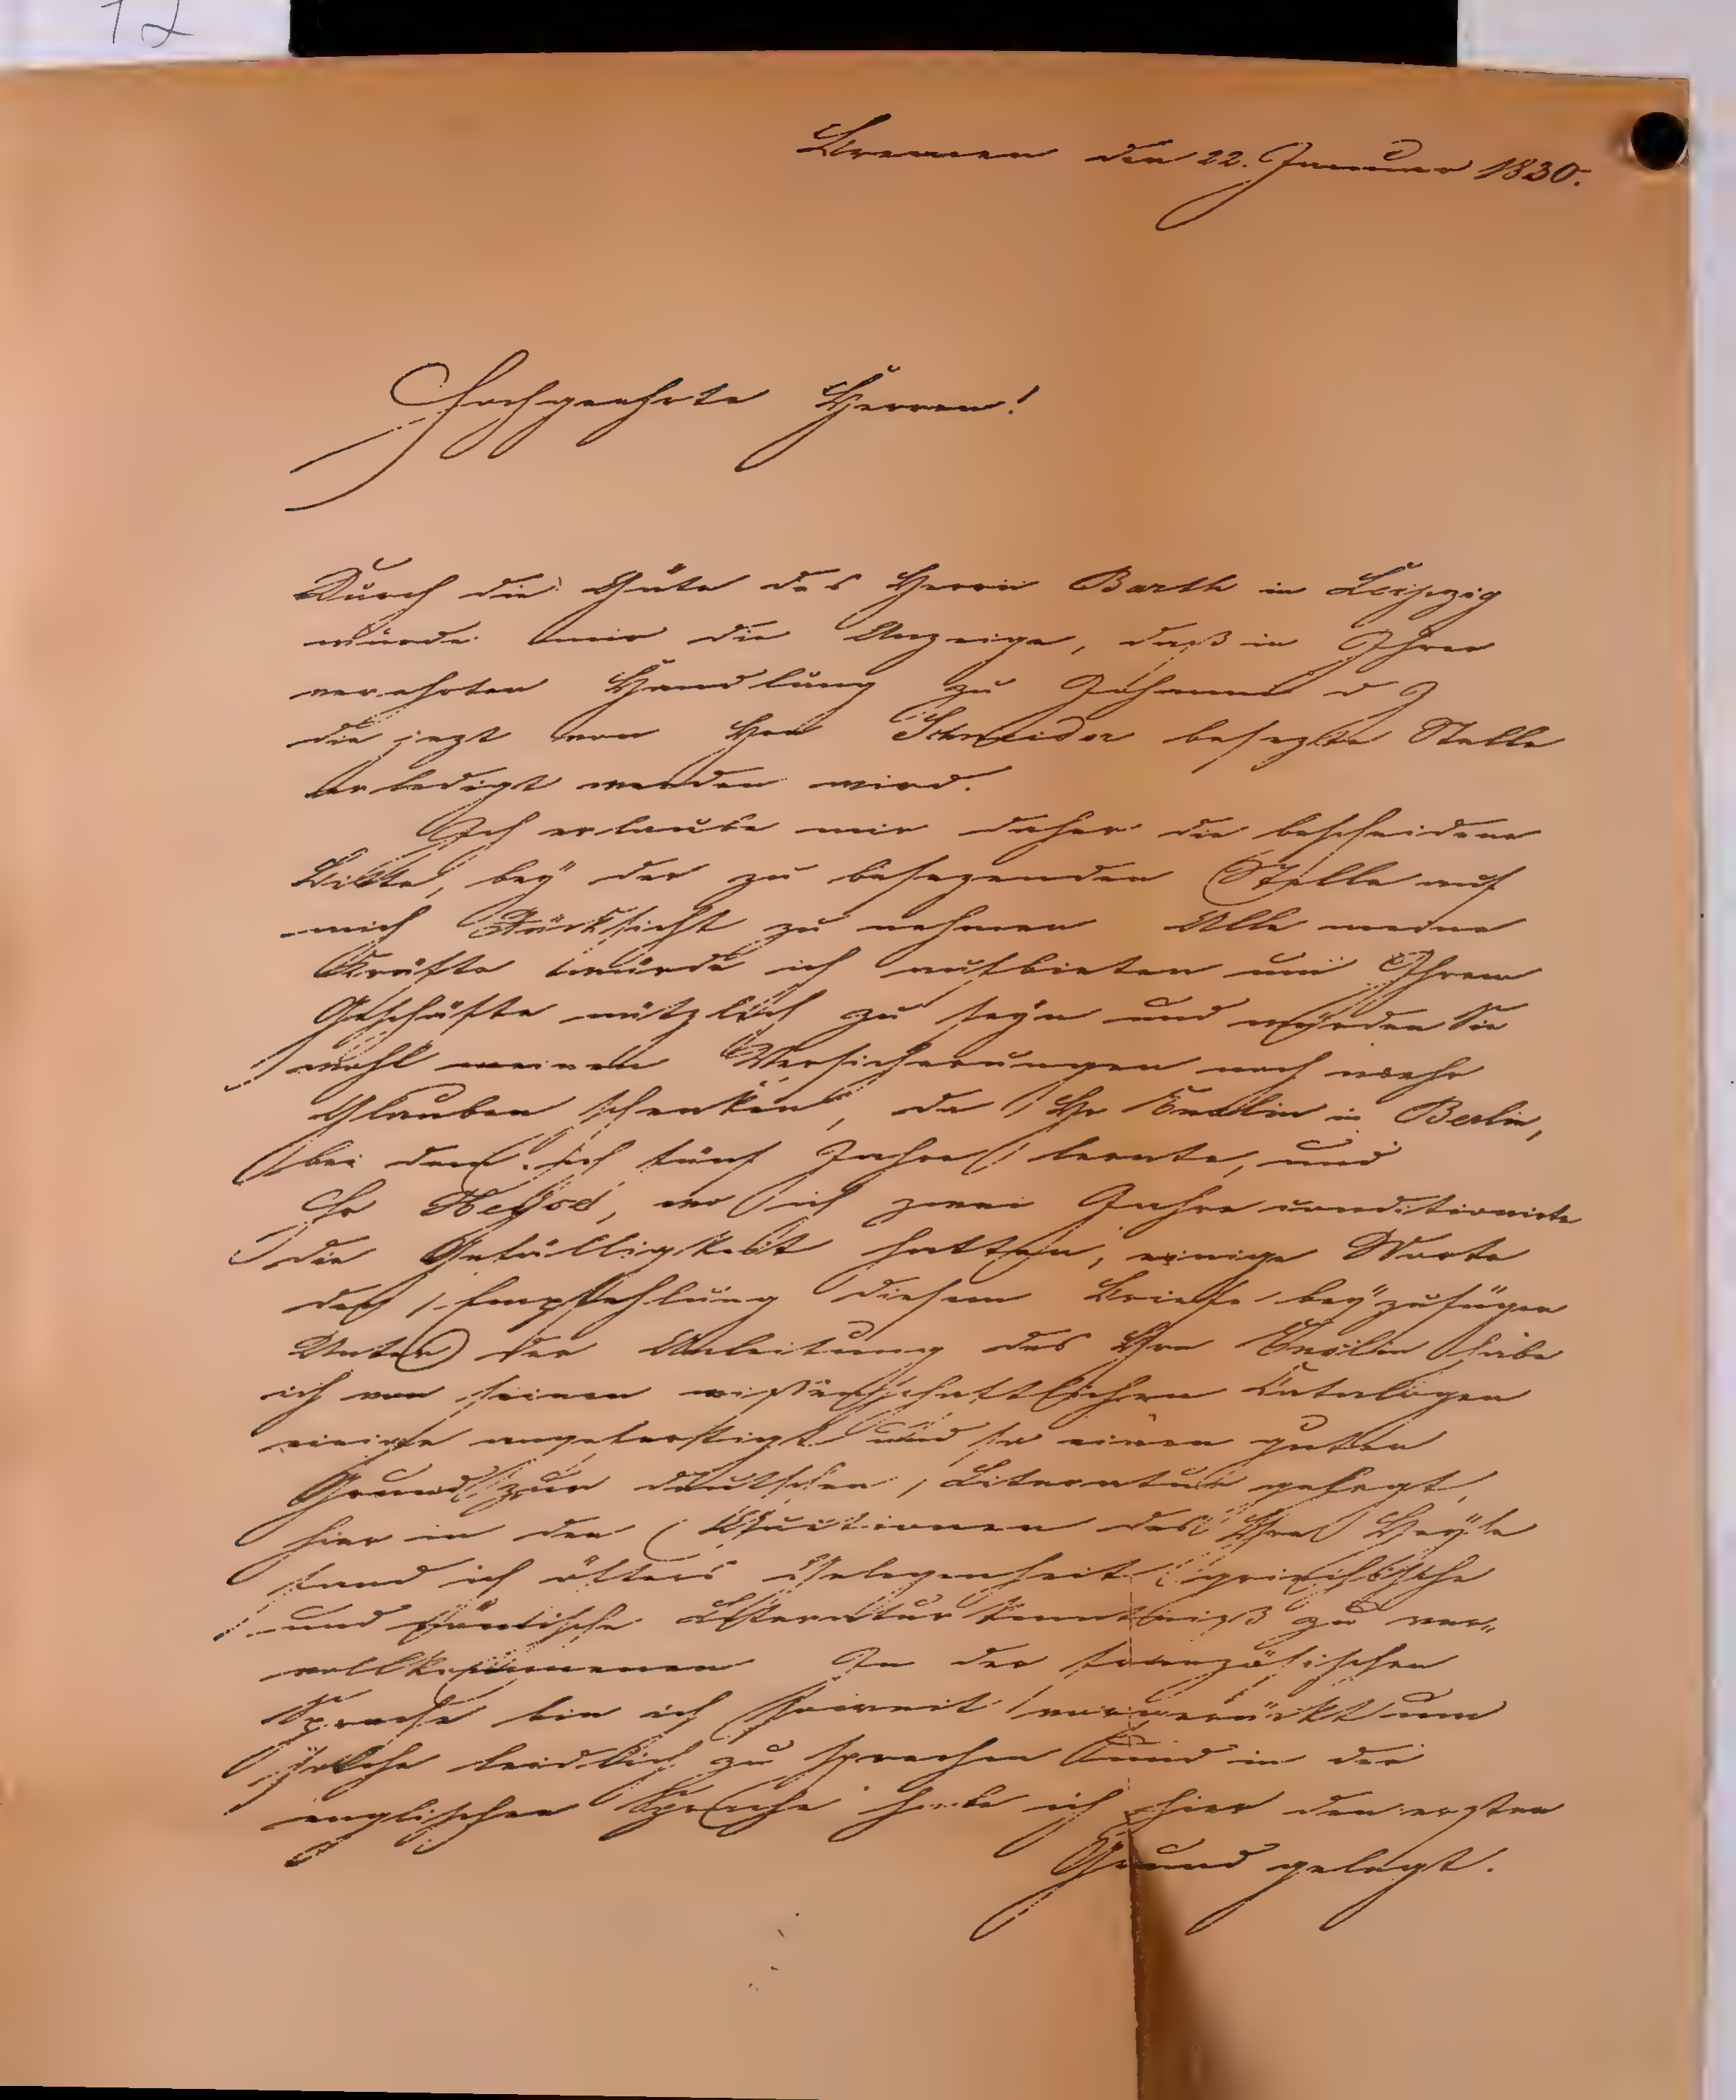 12
Bremen den 22. Januar 1830.
Hochgeehrte Herren!
Durch die Güte des Herrn Barth in Leipzig
wurde mir die Anzeige, daß in Ihrer
verehrten Handlung zu Johanni d J
die jezt von Hrn Schneider besezte Stelle
erledigt werden wird.
Ich erlaube mir daher die bescheidene
Bitte, bey der zu besezenden Stelle auf
mich Rücksicht zu nehmen Alle meine
Kräfte würde ich aufbieten um Ihrem
Geschäfte nützlich zu seyn und werden Sie
wohl meinen Versicherungen noch mehr
Glauben schenken, da Hr Enslin in Berlin,
bei dem ich fünf Jahre lernte, und
Hr Heyse, wo ich zwei Jahre conditionirte
die Gefälligkeit hatten, einige Worte
der Empfehlung diesem Briefe beyzufügen
Unter der Anleitung des Hrn Enslin habe
ich von seinen wißenschaftlichen Catalogen
einige angefertigt und so einen guten
Grund zur deutschen Literatur gelegt,
hier in den Auctionen des Hrn Heyse
fand ich öfters Gelegenheit griechische
und römische Literatur kenntniß zu ver„
vollkommnen In der französischen
Sprache bin ich soweit vorgerückt um
solche leidlich zu sprechen und in der
englischen Sprache habe ich hier den ersten
Grund gelegt.